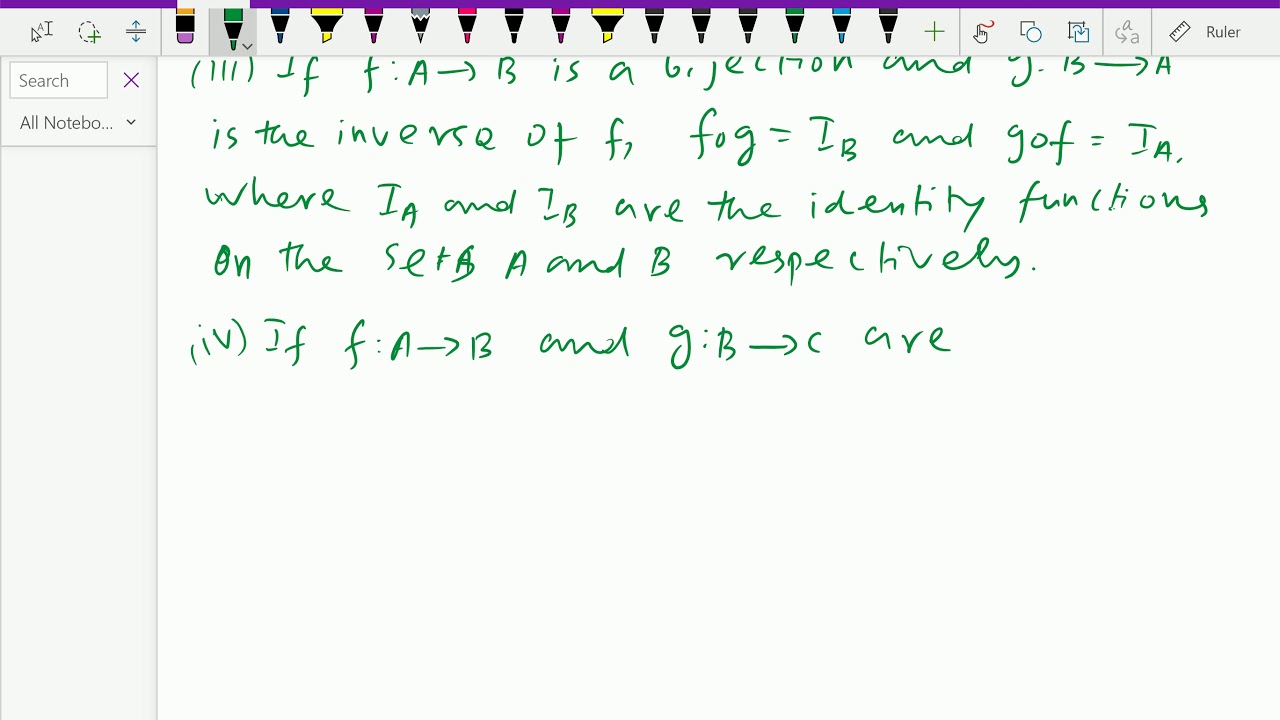 Ruler
Search
All Notebo...
(III) If f : A → B is a bijection and g : B → A
is the inverse of f, fog = I_B and gof = I_A,
where I_A and I_B are the identity functions
on the sets A and B respectively.
(iv) If f : A → B and g : B → C are